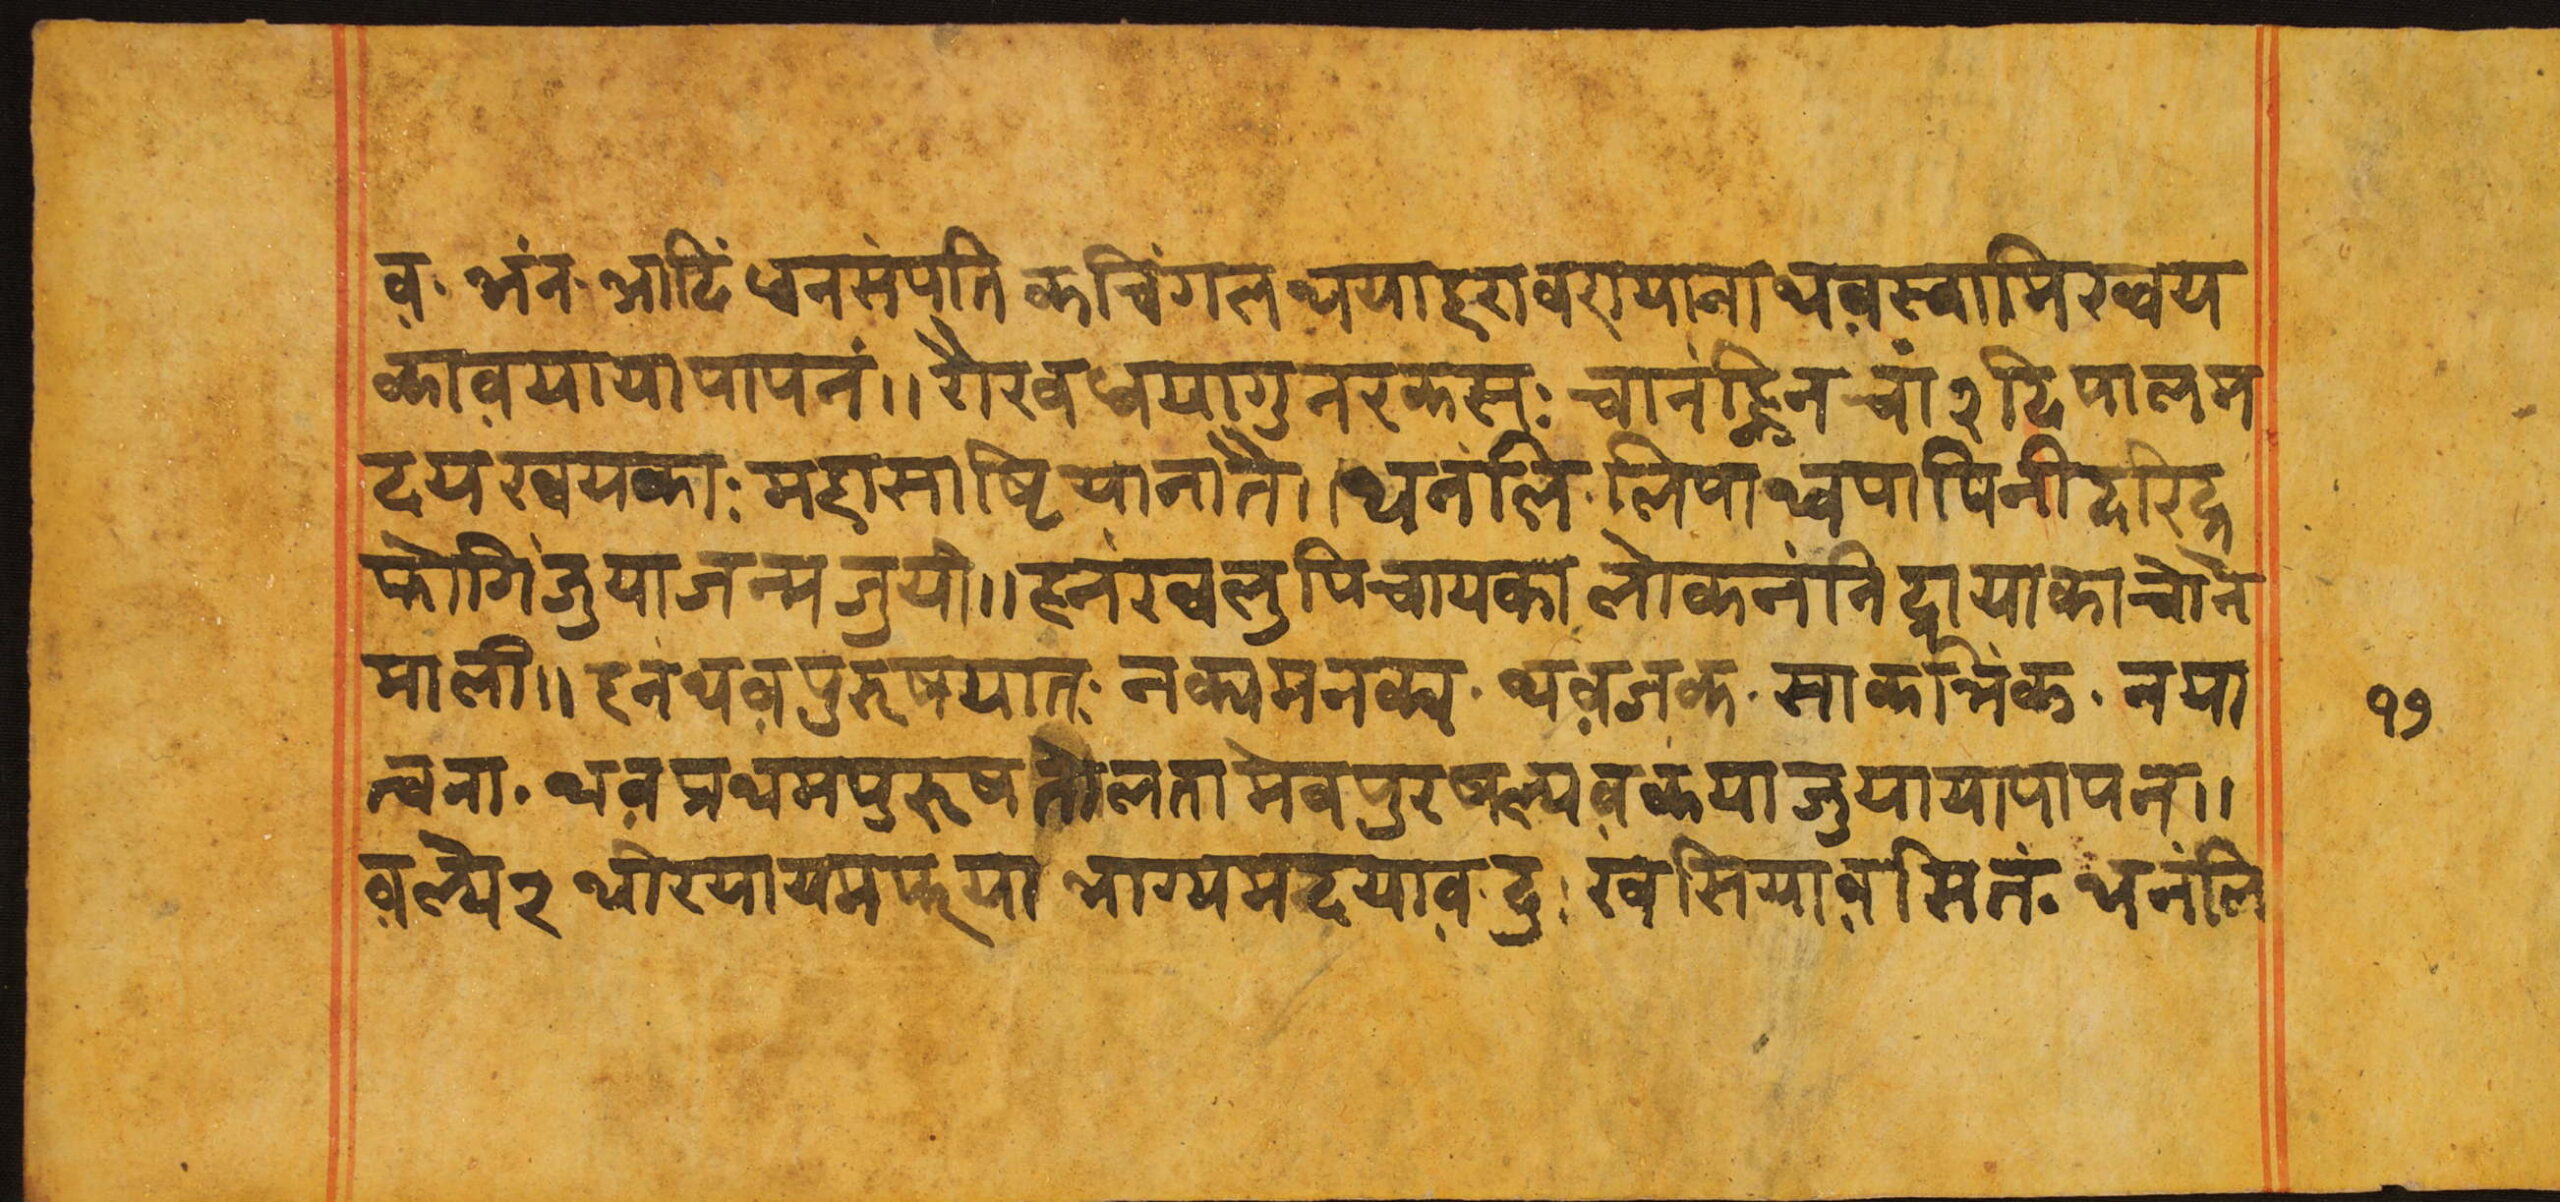 व. अंन. आदिं धनसंपति कचिंगल थयाहरावरायाना थव़स्वामिरखय
काव़यायापापनं॥ रौरवधयागु नरकसः चानंह्निनचां२ दिपालम
दयरखयकाः महासाष्टियानातै॥ थनंलि. लिपाथ्वपापिनी दरिद्र
फोगिंजुयाजन्मजुयी॥ हनंरखलुपिचायका लोकनंनिद्रायाकाचोने
माली॥ हनंथव़पुरुषयात. नक्यमनक्य. थव़जक. साकभिंक. नया
त्वना. थव़प्रथमपुरुष तोलता मेवपुरषल्यव़कयाजुयायापापन॥
व़ल्पे२ थीरयायमफूया भाग्यमदयाव़.दुःरवसियाव़सितं. थनंलि
१७